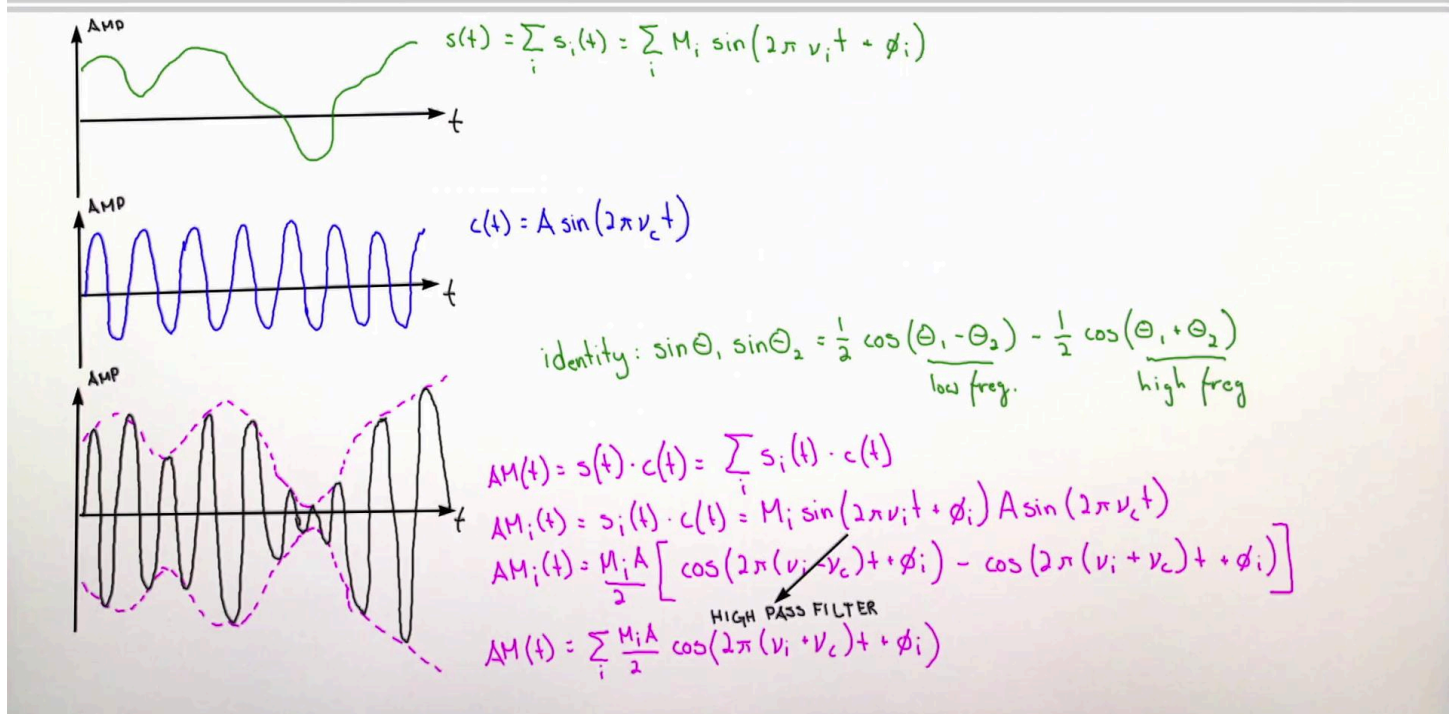 AMP
s(t) = ∑_i s_i(t) = ∑_i M_i sin(2π ν_i t + φ_i)
t
AMP
c(t) = A sin(2π ν_c t)
t
identity: sinθ_1 sinθ_2 = 1/2 cos(θ_1 - θ_2) - 1/2 cos(θ_1 + θ_2)
low freq. high freq
AMP
AM(t) = s(t) · c(t) = ∑_i s_i(t) · c(t)
t
AM_i(t) = s_i(t) · c(t) = M_i sin(2π ν_i t + φ_i) A sin(2π ν_c t)
AM_i(t) = M_i A/2 [cos(2π(ν_i - ν_c)t + φ_i) - cos(2π(ν_i + ν_c)t + φ_i)]
HIGH PASS FILTER
AM(t) = ∑_i M_i A/2 cos(2π(ν_i + ν_c)t + φ_i)